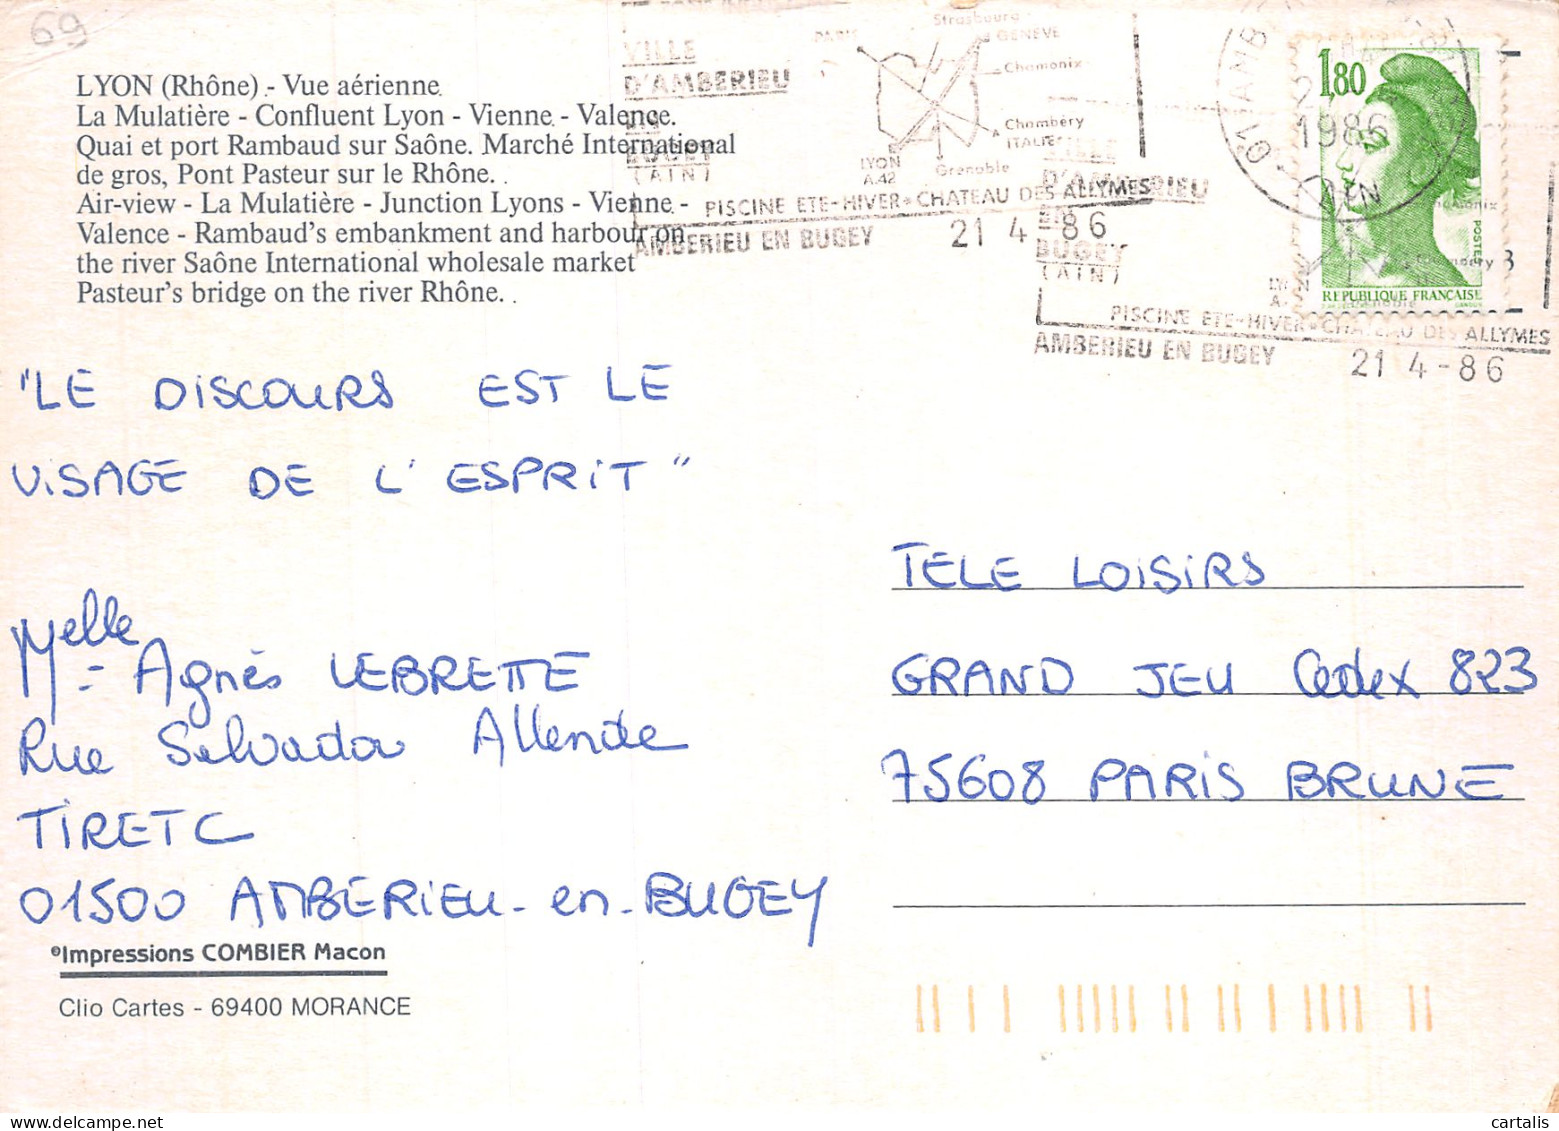 69
LYON (Rhône) - Vue aérienne
La Mulatière - Confluent Lyon - Vienne - Valence.
Quai et port Rambaud sur Saône. Marché International
de gros, Pont Pasteur sur le Rhône.
Air-view - La Mulatière - Junction Lyons - Vienne -
Valence - Rambaud's embankment and harbour on
the river Saône International wholesale market
Pasteur's bridge on the river Rhône.
VILLE
D'AMBERIEU
EN
BUGEY
(AIN)
PARIS
Strasbourg
GENÈVE
Chamonix
Chambéry
ITALIE
Grenoble
LYON
A.42
PISCINE ETE-HIVER * CHATEAU DES ALLYMES
AMBERIEU EN BUGEY 21 4 -86
VILLE
D'AMBERIEU
EN
BUGEY
(AIN)
PISCINE ETE-HIVER * CHATEAU DES ALLYMES
AMBERIEU EN BUGEY 21 4 - 86
1986
AIN
1,80
POSTES
REPUBLIQUE FRANÇAISE
"LE DISCOURS EST LE
VISAGE DE L'ESPRIT"
Melle Agnès LEBRETTE
Rue Salvador Allende
TIRET C
01500 AMBERIEU-en-BUGEY
TELE LOISIRS
GRAND JEU Cedex 823
75608 PARIS BRUNE
Impressions COMBIER Macon
Clio Cartes - 69400 MORANCE
cartalis